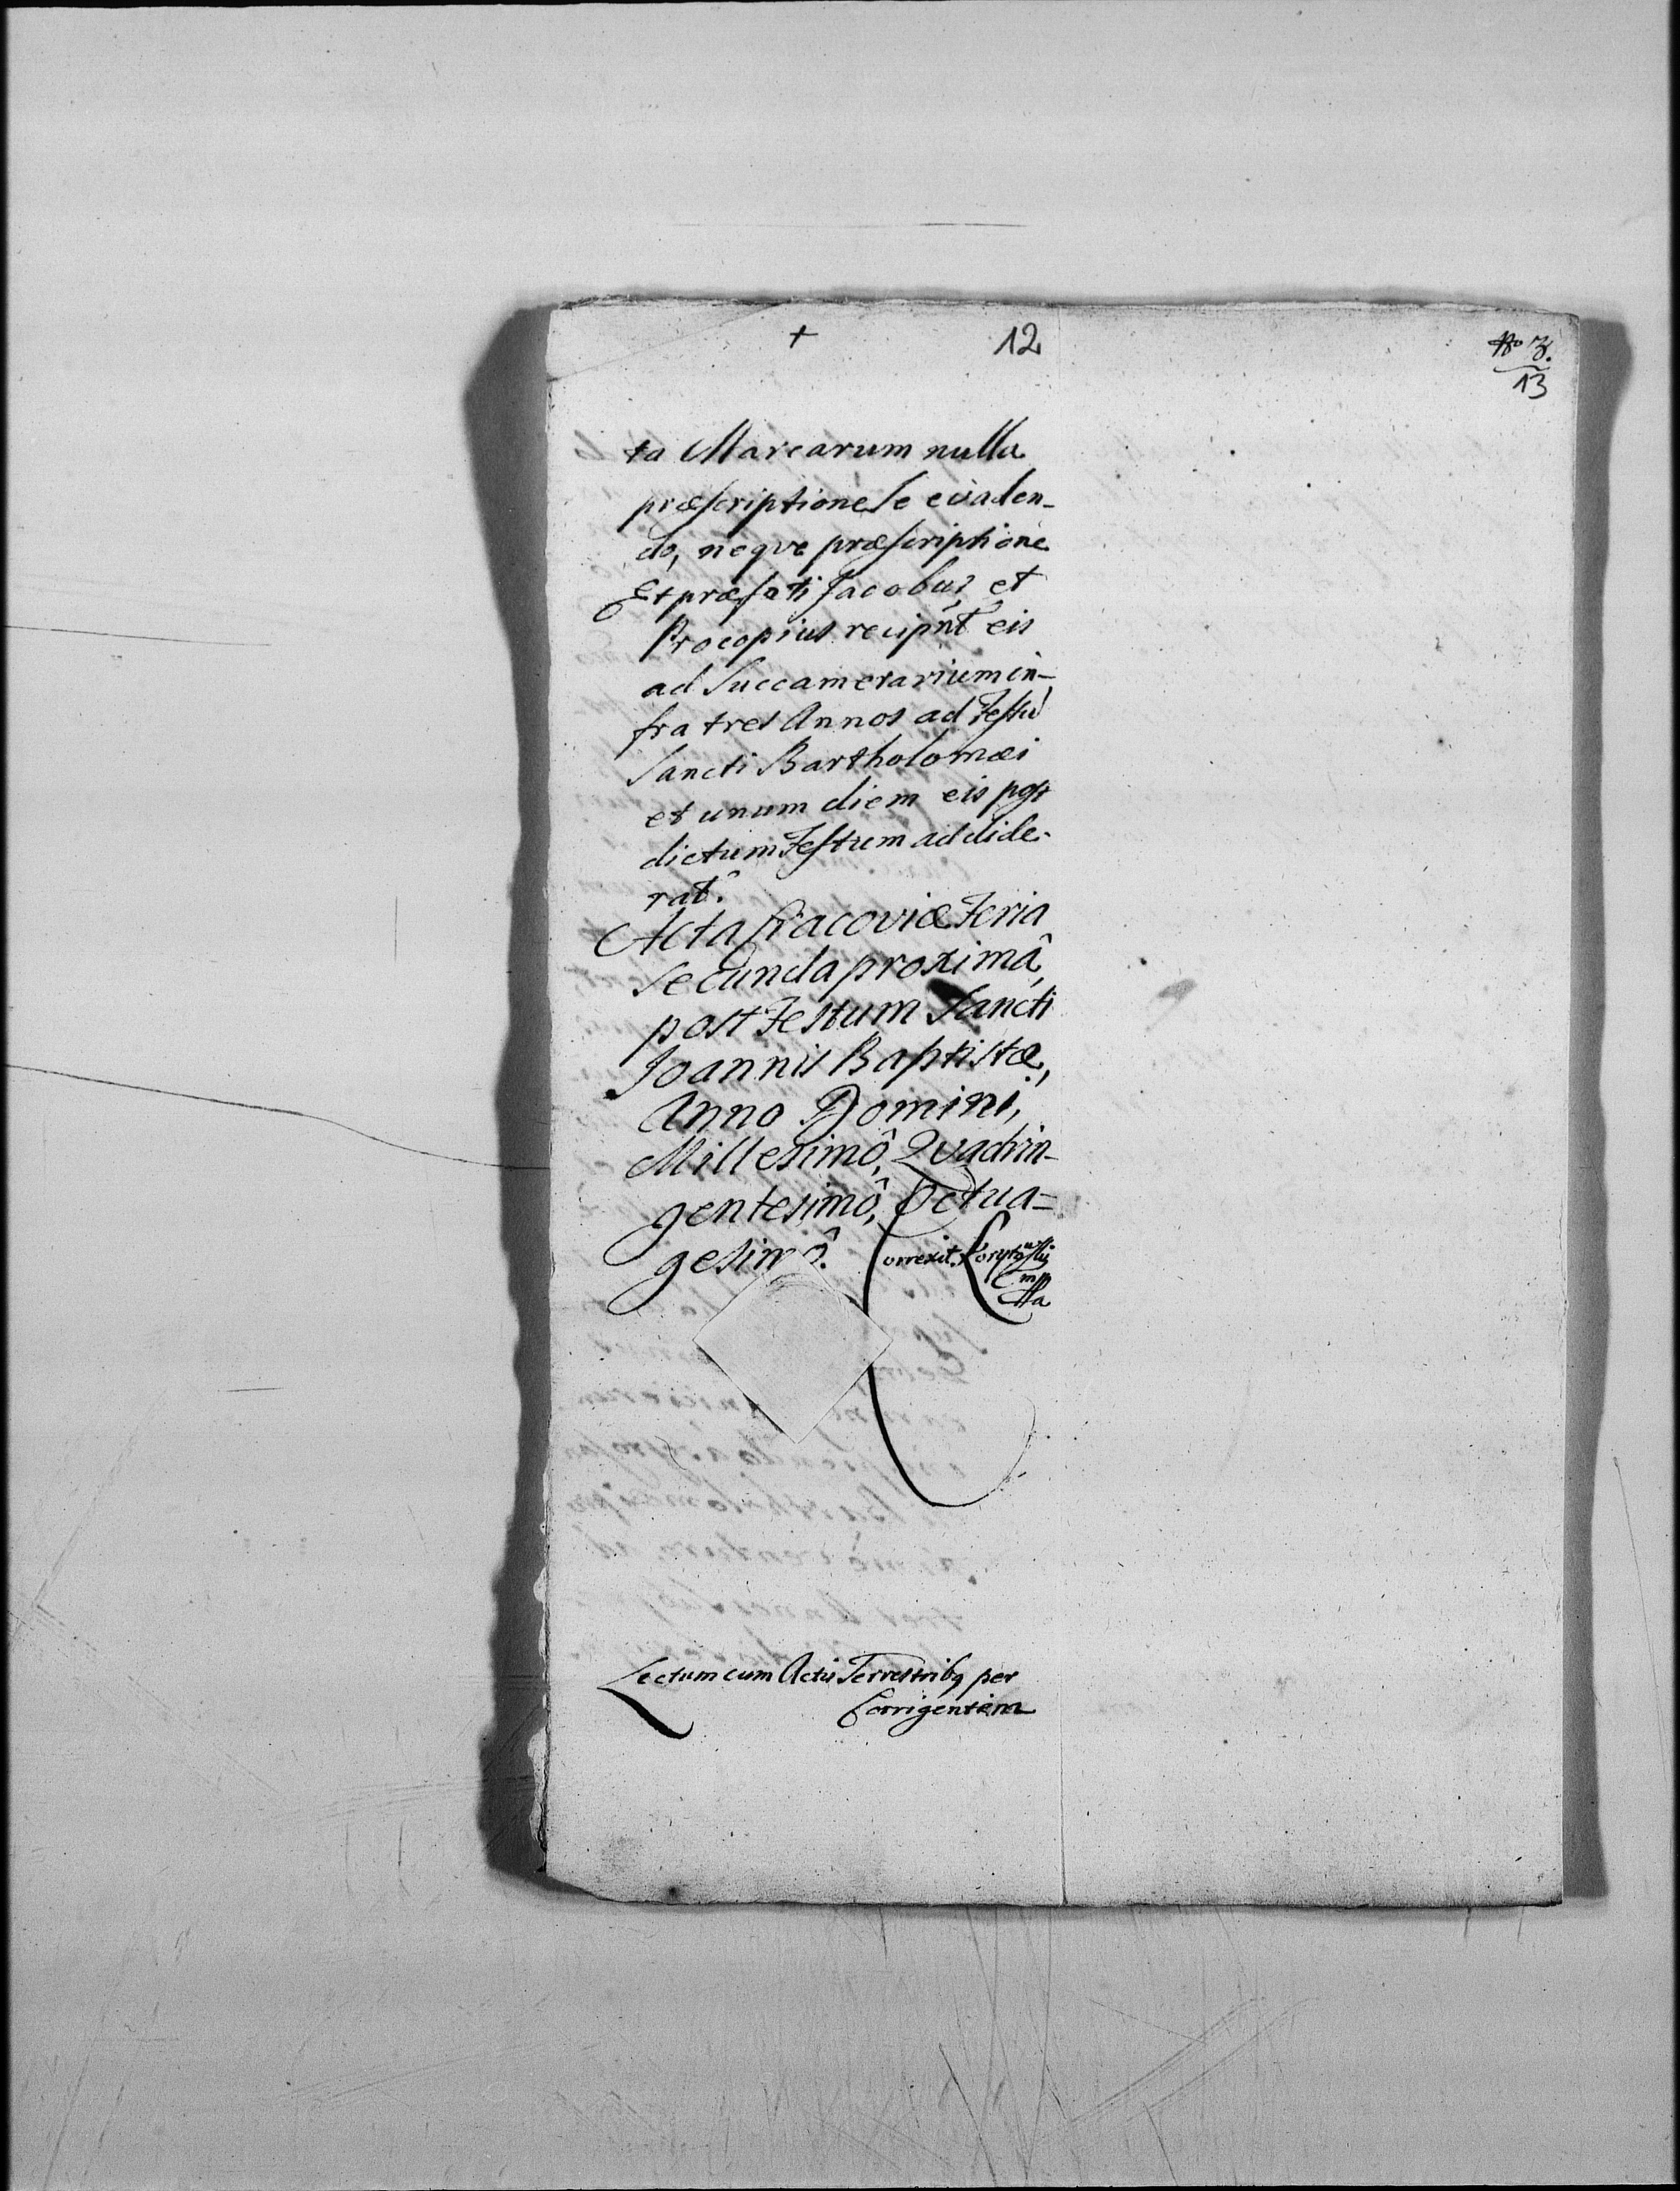 + 12
No 3.
13
ta Marcarum nulla
præscriptione se evaden-
do, neque præscriptione
Et præfati Jacobus et
Procopius recipnt eis
ad Succamerarium in-
fra tres Annos ad Festũ
Sancti Bartholomæi
et unum diem eis post
dictum Festum addide-
rat.
Acta Cracoviæ Feria
secunda proximâ,
post Festum Sancti
Joannis Baptistæ,
Anno Domini,
Millesimô, Quadrin-
gentesimô, Octua=
gesimô. Correxit
mp
Lectum cum Actis Terrestribq per
Corrigentem